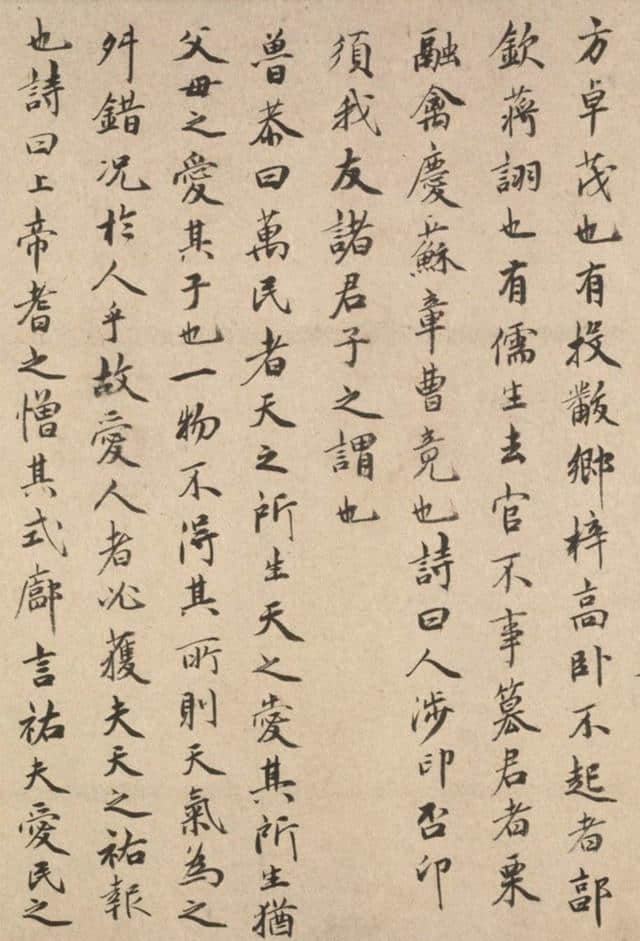 方卓茂也有投黻鄉梓高卧不起者郃
欽蔣詡也有儒生去官不事篡君者栗
融禽慶蘇章曹竟也詩曰人涉卬否卬
須我友諸君子之謂也
魯恭曰萬民者天之所生天之愛其所生猶
父母之愛其子也一物不得其所則天氣為之
舛錯况於人乎故愛人者必獲夫天之祐報
也詩曰上帝耆之憎其式廓言祐夫愛民之